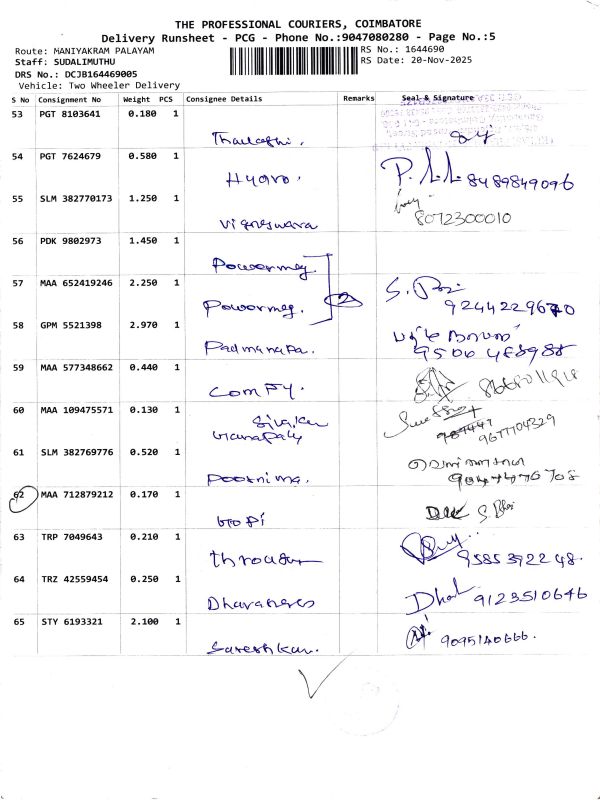 THE PROFESSIONAL COURIERS, COIMBATORE
Delivery Runsheet - PCG - Phone No.:9047080280 - Page No.:5
Route: MANIYAKRAM PALAYAM
RS No.: 1644690
Staff: SUDALIMUTHU
RS Date: 20-Nov-2025
DRS No.: DCJB164469005
Vehicle: Two Wheeler Delivery
S No Consignment No Weight PCS Consignee Details Remarks Seal & Signature
53 PGT 8103641 0.180 1
54 PGT 7624679 0.580 1
Hydro. 8489849096
55 SLM 382770173 1.250 1
8072300010
Vigneswara
56 PDK 9802973 1.450 1
Powormeg.
57 MAA 652419246 2.250 1
Powormeg. 2
58 GPM 5521398 2.970 1
Padmanapa.
59 MAA 577348662 0.440 1
COMFY.
60 MAA 109475571 0.130 1
9677704329
61 SLM 382769776 0.520 1
Poornima.
62 MAA 712879212 0.170 1
Gopi
63 TRP 7049643 0.210 1
9585392248.
64 TRZ 42559454 0.250 1
Dhal 9123510646
65 STY 6193321 2.100 1
9095140666.
Sureshkar.